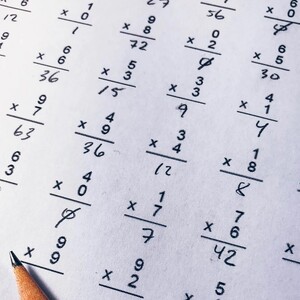 12
1
x 0
1
9
x 8
72
0
x 2
0
6
x 5
30
56
x 0
0
6
x 6
36
5
x 3
15
3
x 3
9
4
x 1
4
9
x 7
63
4
x 9
36
3
x 4
12
1
x 8
8
6
3
4
x 0
0
1
x 7
7
7
x 6
42
9
x 9
9
x 2
5